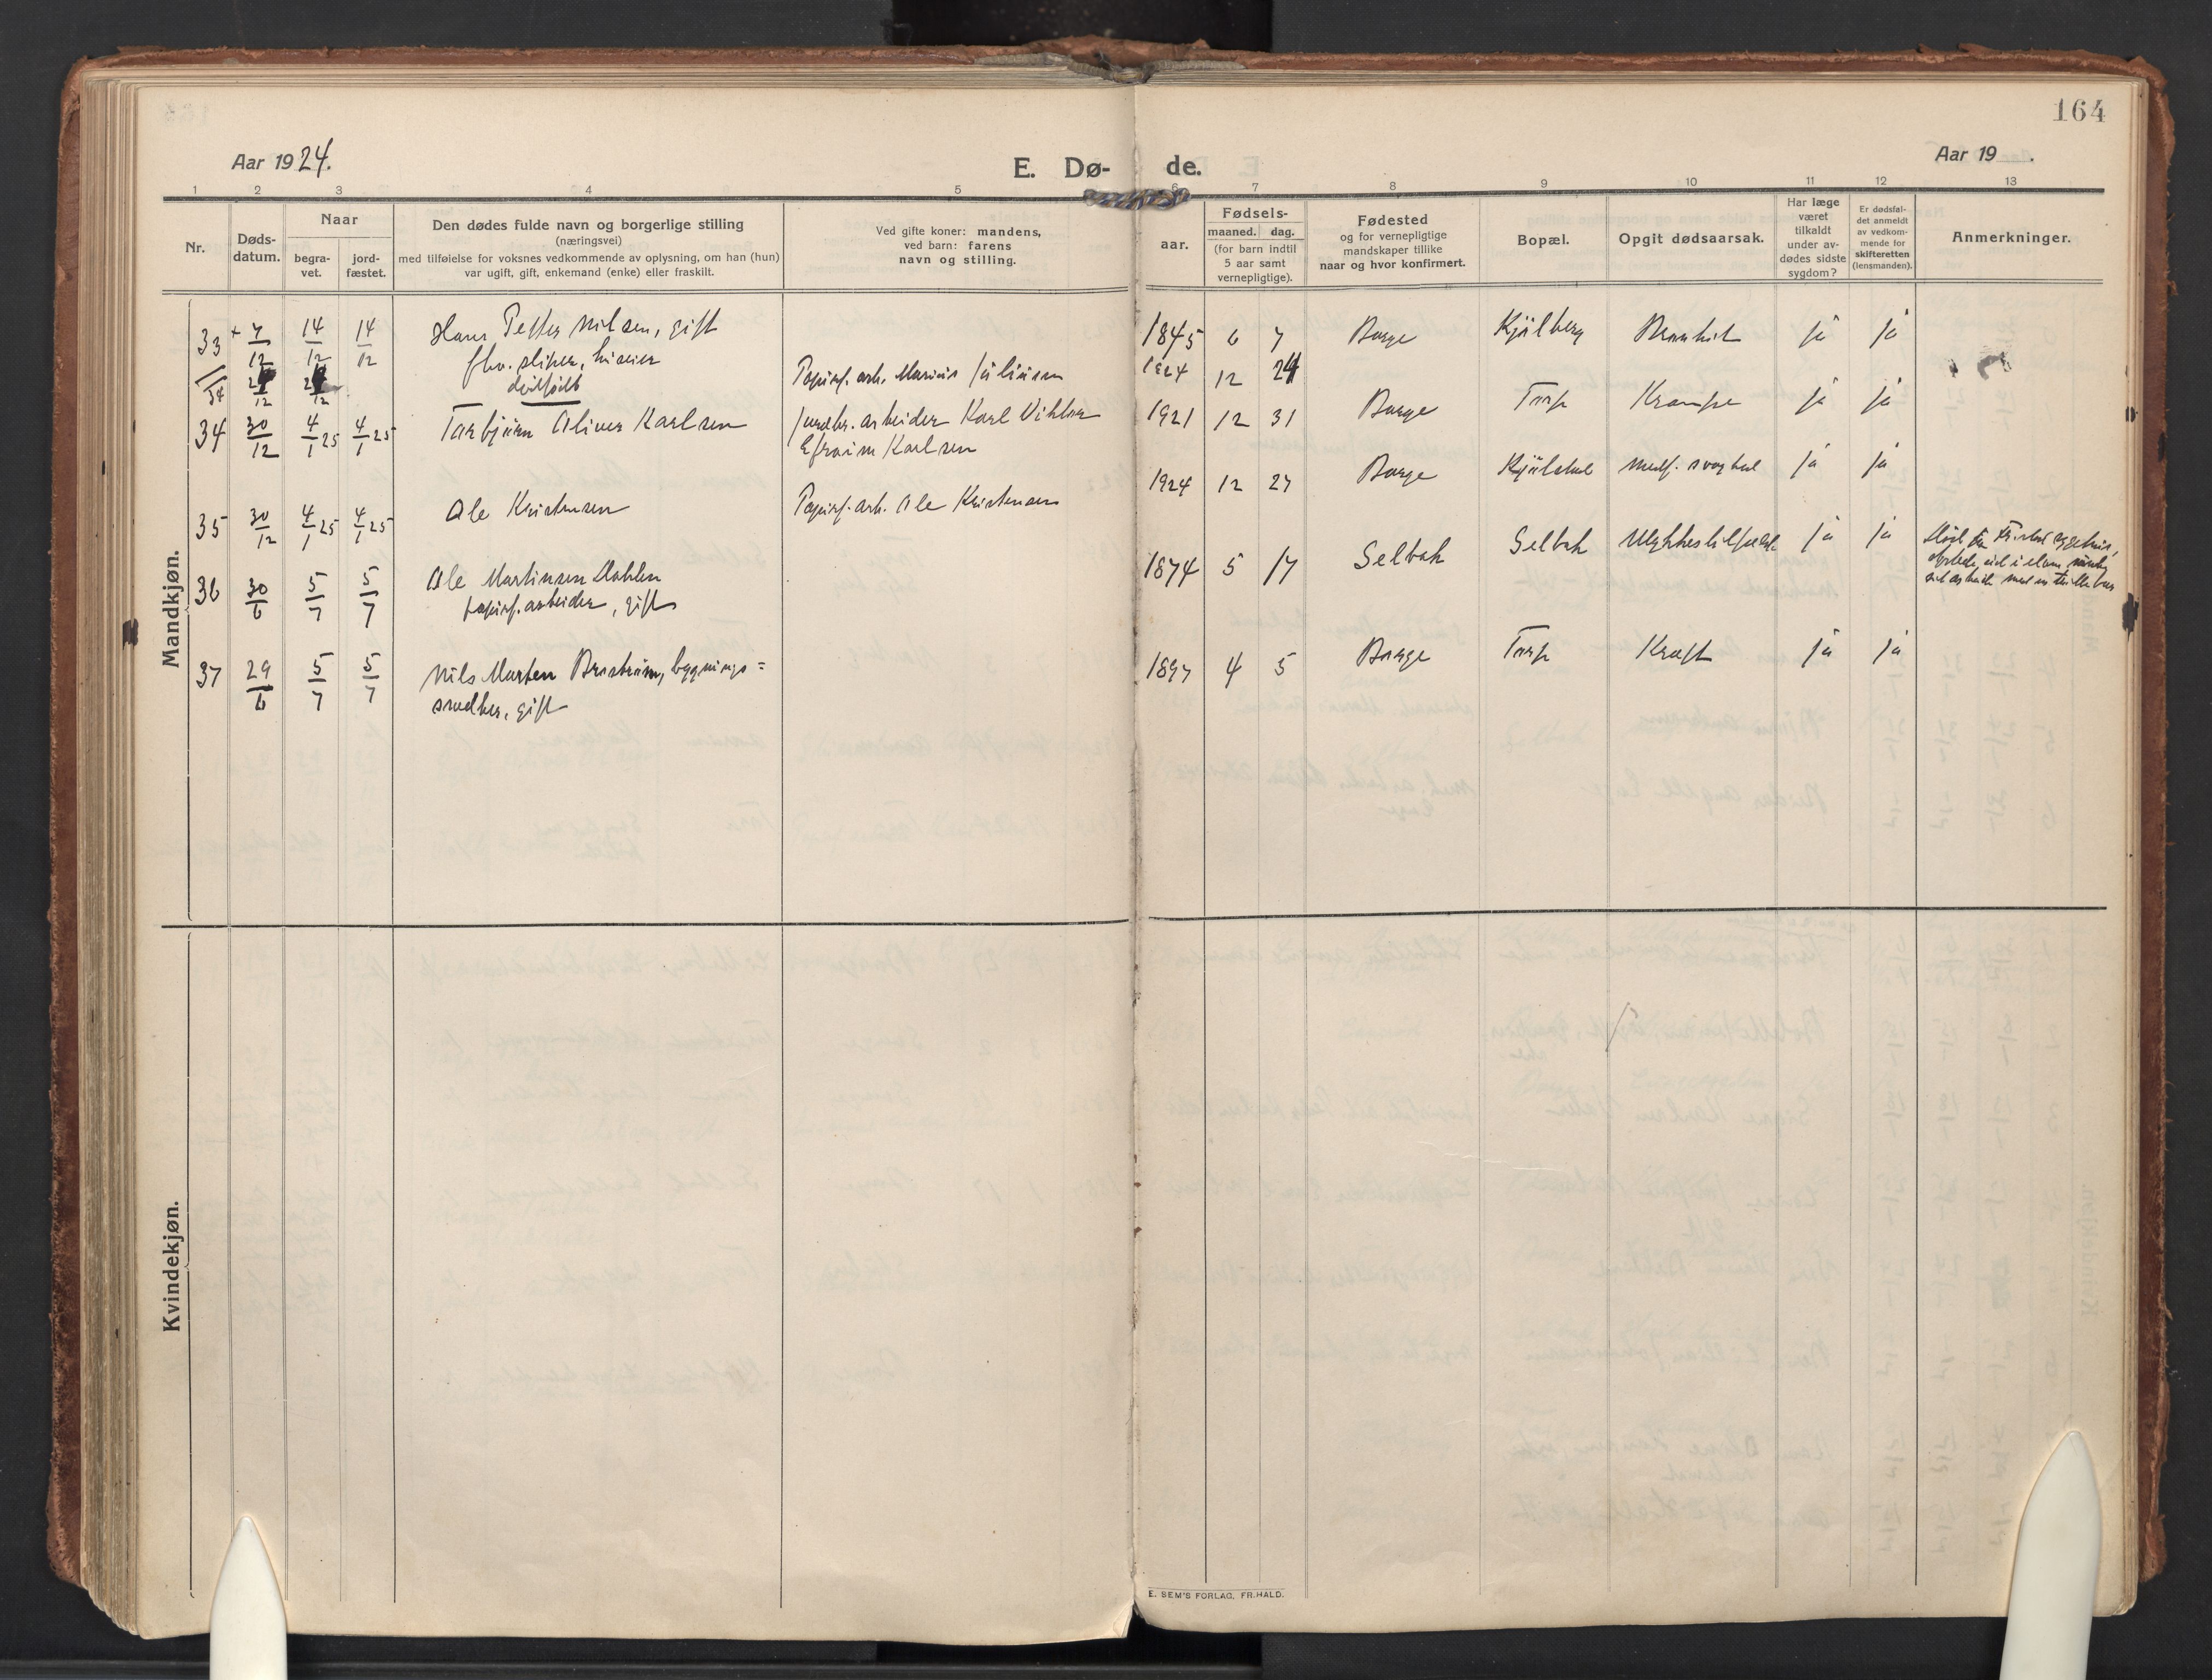 164
Aar 1924.
E. Dø-
de.
Aar 19 .
1 2 3 4 5 6 7 8 9 10 11 12 13
Nr.
Døds-
datum.
Naar
begra-
vet.
jord-
fæstet.
Den dødes fulde navn og borgerlige stilling
(næringsvei)
med tilføielse for voksnes vedkommende av oplysning, om han (hun)
var ugift, gift, enkemand (enke) eller fraskilt.
Ved gifte koner: mandens,
ved barn: farens
navn og stilling.
aar.
Fødsels-
maaned. dag.
(for barn indtil
5 aar samt
vernepligtige).
Fødested
og for vernepligtige
mandskaper tillike
naar og hvor konfirmert.
Bopæl.
Opgit dødsaarsak.
Har læge
været
tilkaldt
under av-
dødes sidste
sygdom?
Er dødsfal-
det anmeldt
av vedkom-
mende for
skifteretten
(lensmanden).
Anmerkninger.
Mandkjøn.
33 + 7/12 14/12 14/12 Hans Petter Nilsen, gift 1845 6 7 Borge Kjølberg ja ja
fhv. sliper, huseier
dødfødt Papirf. arb. Marius Juliusen 1924 12 24
34 30/12 4/1 25 4/1 25 Torbjørn Oliver Karlsen arbeider Karl Viktor 1921 12 31 Borge Torp Krampe ja ja
Efraim Karlsen
35 30/12 4/1 25 4/1 25 Ole Kristensen Papirf. arb. Ole Kristensen 1924 12 27 Borge medf. svaghet ja ja
36 30/6 5/7 5/7 Ole Martinsen Dahlen 1874 5 17 Selbak Selbak Ulykkestilfælde ja ja
papirf. arbeider, gift
37 29/6 5/7 5/7 Nils Morten Broström, bygnings= 1897 4 5 Borge Torp Kræft ja ja
snedker, gift
Kvindekjøn.
E. SEM'S FORLAG, FR.HALD.